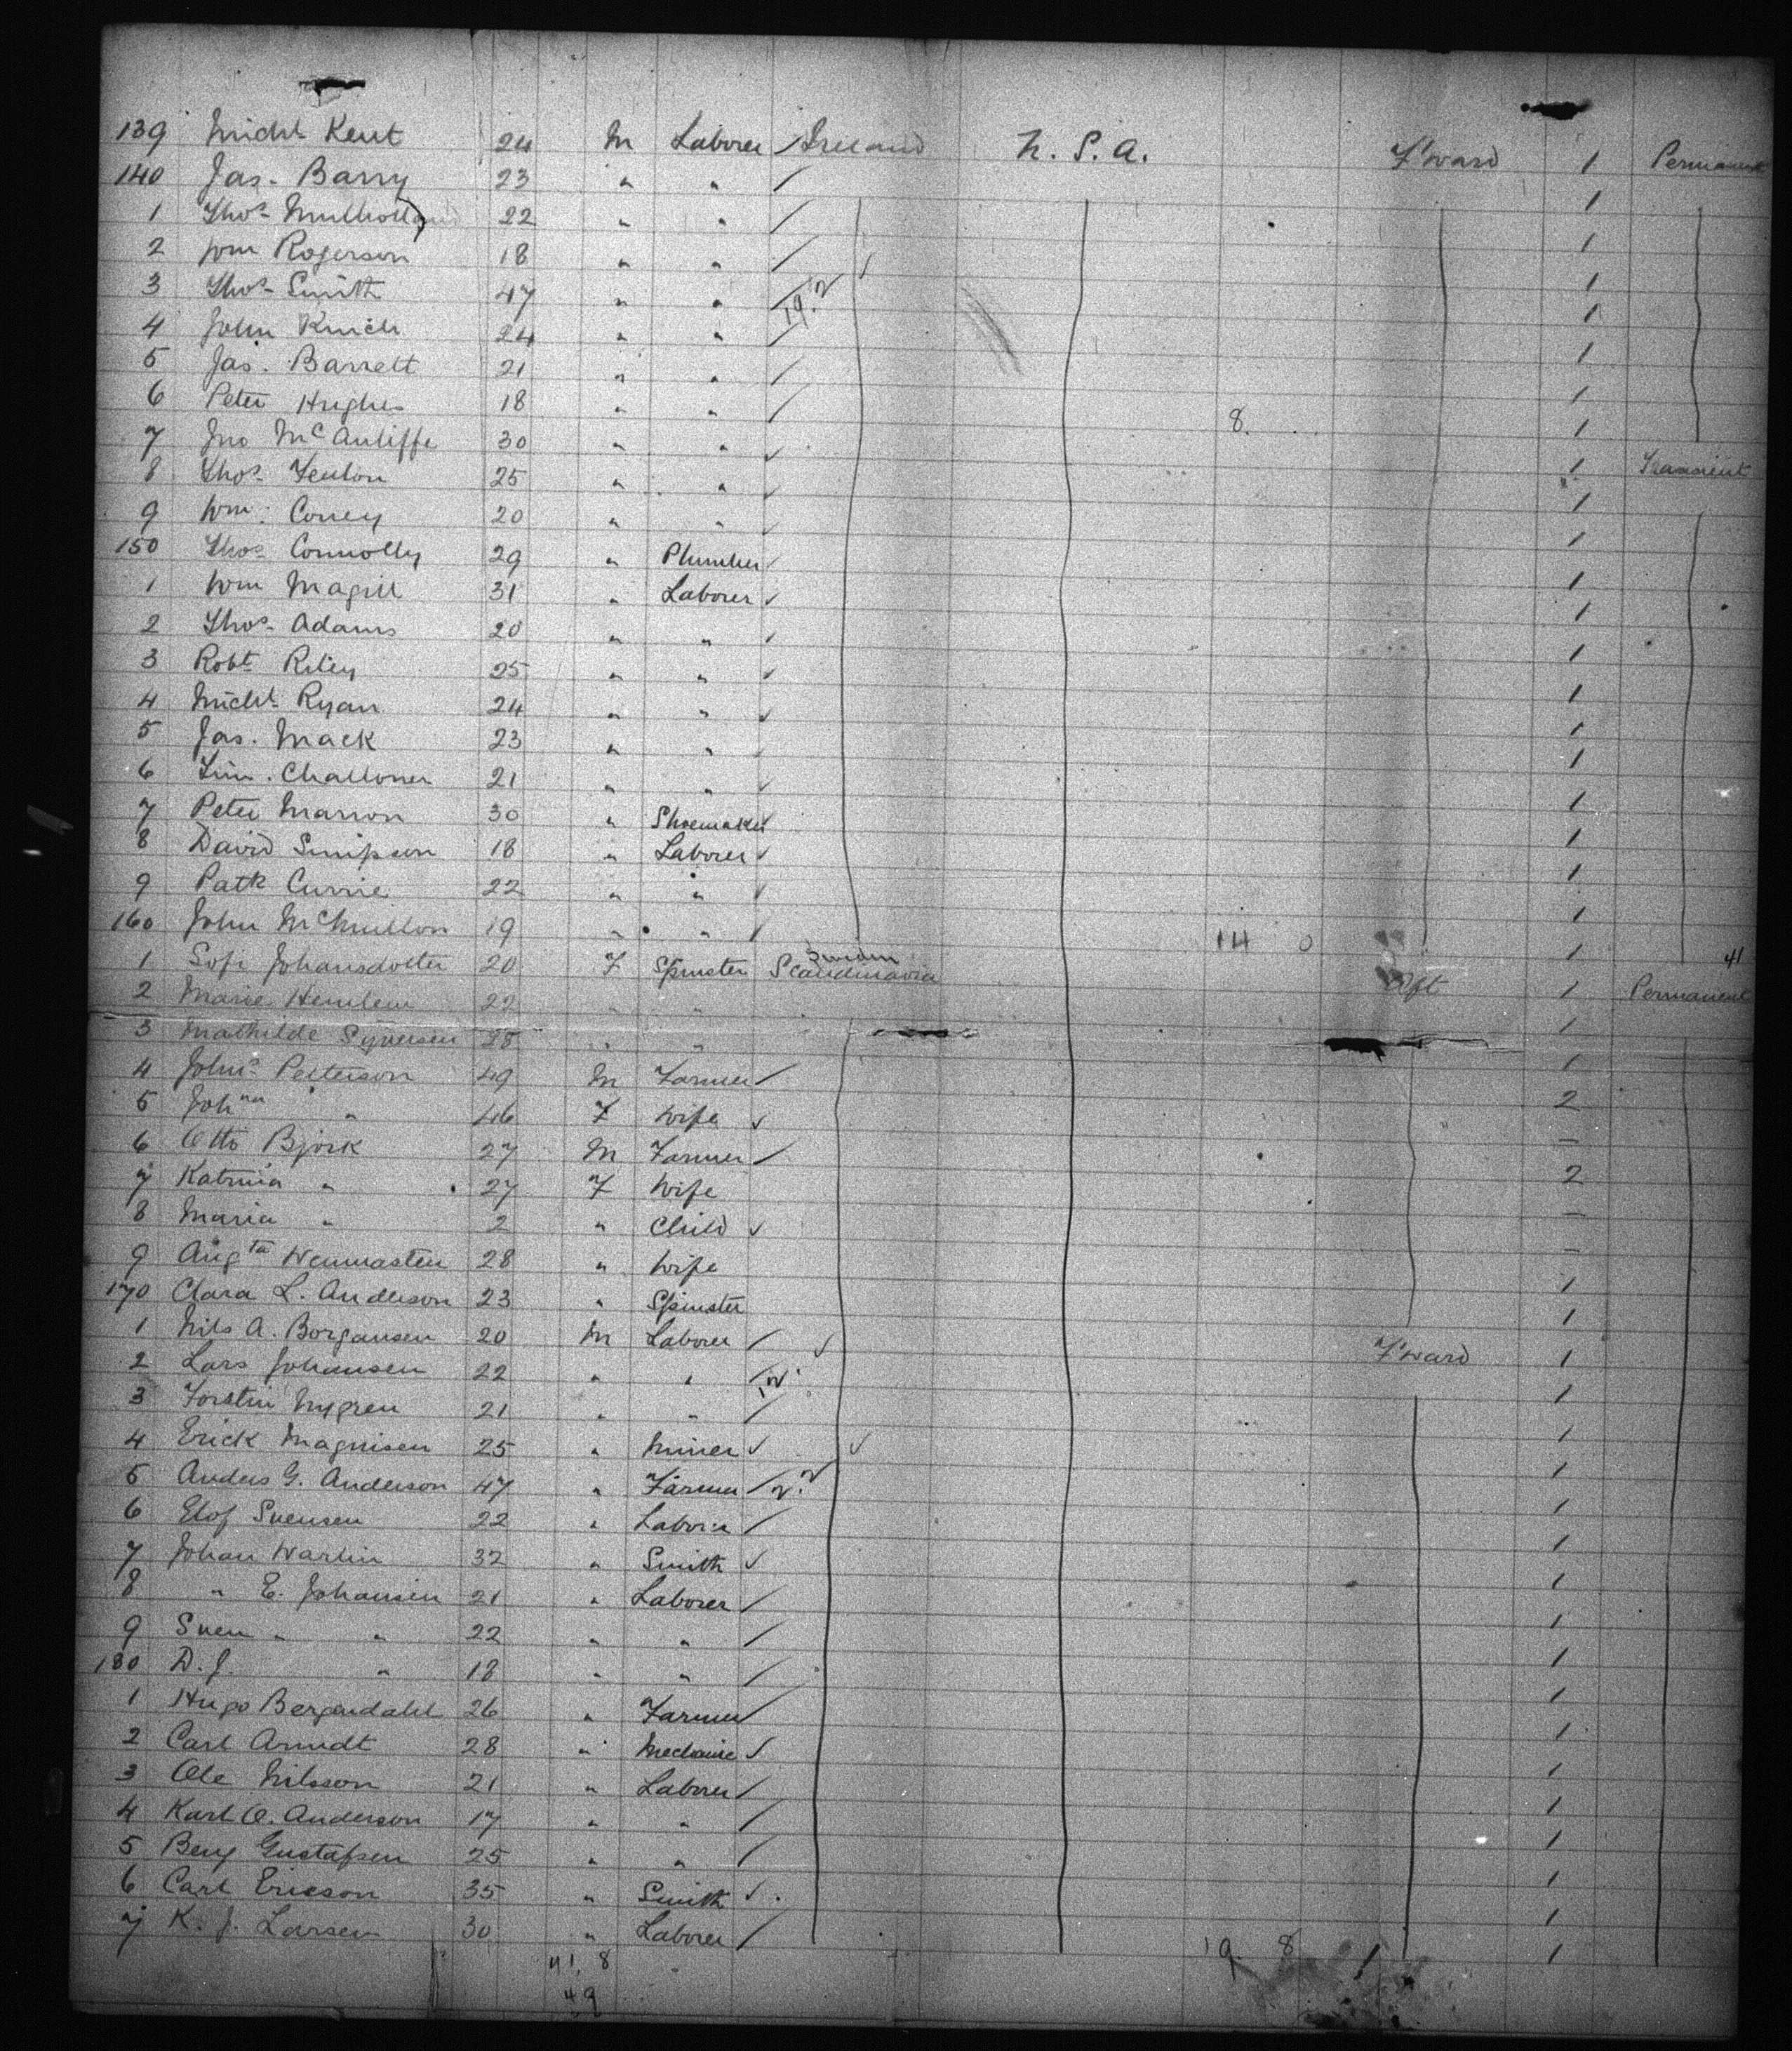 139 Michl Kent 24 M Laborer / Ireland U.S.A. F'ward 1 Permanent
140 Jas. Barry 23 " " / 1
1 Thos. Mulholland 22 " " / 1
2 Wm Rogerson 18 " " / 1
3 Thos. Smith 47 " " / 1
4 John 24 " " / 1
5 Jas. Barrett 21 " " / 1
6 Peter Hughes 18 " " / 8 1
7 Jno McAuliffe 30 " " ✓ 1 Transient
8 Thos. Fenlon 25 " " ✓ 1
9 Wm. Correy 20 " " ✓ 1
150 Thos. Connolly 29 " Plumber ✓ 1
1 Wm Magill 31 " Laborer ✓ 1
2 Thos. Adams 20 " " ✓ 1
3 Robt. Riley 25 " " ✓ 1
4 Michl. Ryan 24 " " ✓ 1
5 Jas. Mack 23 " " ✓ 1
6 Tim. Challoner 21 " " ✓ 1
7 Peter Marron 30 " Shoemaker ✓ 1
8 David Simpson 18 " Laborer ✓ 1
9 Patk Currie 22 " " ✓ 1
160 John McMullon 19 " " ✓ 14 0 1 41
Sweden
1 Sofi Johansdotter 20 F Spinster Scandinavia Aft 1 Permanent
2 Marie 22 " " 1
3 Mathilde Syversen 28 " " 1
4 Johns. Petterson 49 M Farmer / 2
5 Johna " 46 F Wife ✓ —
6 Otto Bjork 27 M Farmer / 2
7 Katrina " 27 F Wife —
8 Maria " 2 " Child ✓ —
9 Augta Wennasten 28 " Wife 1
170 Clara L. Anderson 23 " Spinster 1
1 Nils A. Borgansen 20 M Laborer / F'ward 1
2 Lars Johansen 22 " " / 1
3 Torstin Nygren 21 " " / 1
4 Erick Magnisen 25 " Miner ✓ 1
5 Anders G. Anderson 47 " Farmer / 1
6 Elof Svensen 22 " Laborer / 1
7 Johan Warlin 32 " Smith ✓ 1
8 " E. Johansen 21 " Laborer / 1
9 Sven " " 22 " " / 1
180 D. J. " 18 " " / 1
1 Hugo Bergendahl 26 " Farmer / 1
2 Carl Arndt 28 " Mechanic ✓ 1
3 Ole Nilsson 21 " Laborer / 1
4 Karl O. Anderson 17 " " / 1
5 Beng Gustafsen 25 " " / 1
6 Carl Ericson 35 " Smith ✓ 1
7 K. J. Larsen 30 " Laborer / 19 8 1 1
41. 8
49